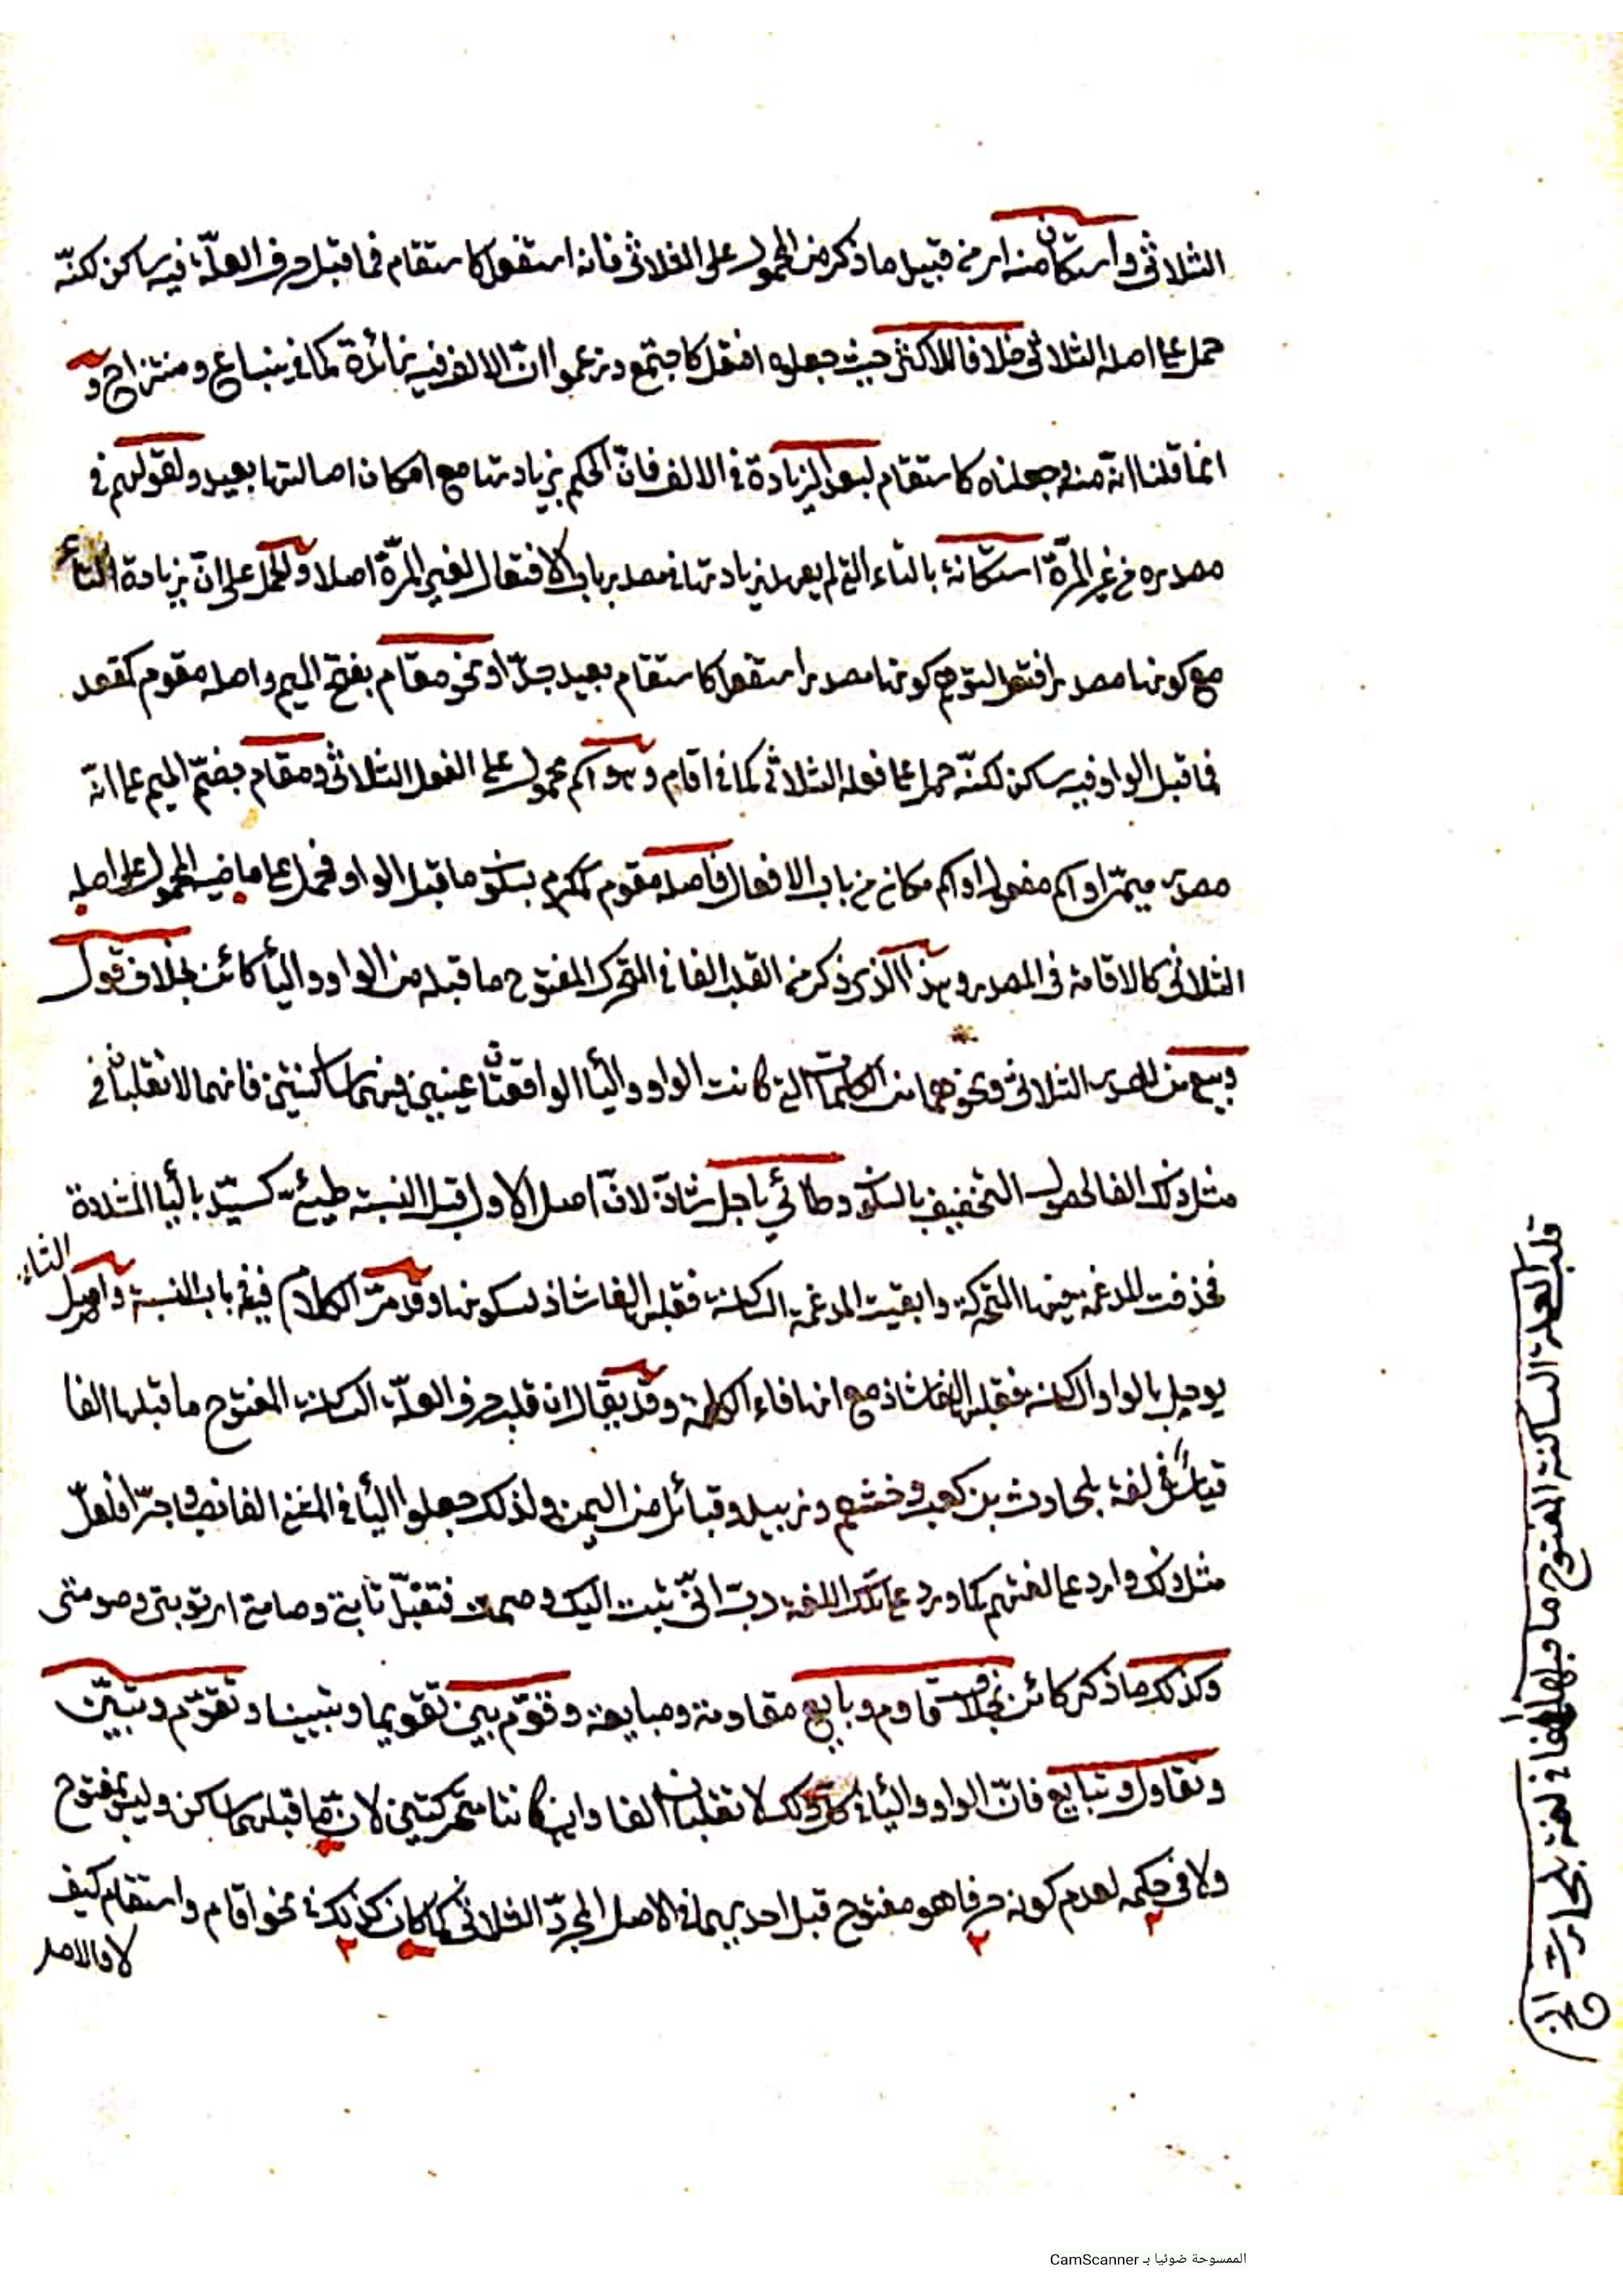 الثلاثي واستكان منه اى من قبيل ما ذكر من المحمول على الثلاثي فانه استفعل كاستقام فما قبل حرف العلّة فيه ساكن لكنّه
حمل على اصله الثلاثي خلافا للاكثر حيث جعلوه افتعل كاجتمع وزعموا انّ الالف فيه زائدة كما في ينباع ومنتزاح و
انما قلنا انّه منه وجعلناه كاستقام لبعد الزيادة في الالف فانّ الحكم بزيادتها مع امكان اصالتها بعيد ولقولهم في
مصدره من غير المرّة استكانة بالتاء التي لم يعهد زيادتها في مصدر باب الافتعال لغير المرّة اصلا والحمل على انّ زيادة التاء
مع كونها مصدر افتعل لتوهم كونها مصدر استفعل كاستقام بعيد جدّا ونحو مقام بفتح الميم واصله مقوم كمقعد
فما قبل الواو فيه ساكن لكنّه حمل على فعله الثلاثي كما في اقام وهو اسم محمول على الفعل الثلاثي ومقام بضمّ الميم على انّه
مصدر ميمىّ او اسم مفعول او اسم مكان من باب الافعال فاصله مقوم كمكرم بسكون ما قبل الواو فحمل على ماضيه المحمول على اصله
الثلاثي كالاقامة في المصدر وهذا الذي ذكر من القلب الفا في المتحرك المفتوح ما قبله من الواو والياء كائن بخلاف قول
وبيع من المصدر الثلاثي ونحوهما من الكلمات التي كانت الواو والياء الواقعتان عينين فيهما ساكنتين فانهما لا تقلبان في
مثل ذلك الفا لحصول التخفيف بالسكون وطائي ياجل شاذّ لانّ اصل الاول قبل النسبة طيئ كسيّد بالياء المشددة
فحذفت المدغمة فيها المتحركة وابقيت المدغمة الساكنة فقلبها الفا شاذ لسكونها وقد مرّ الكلام فيه في باب النسبة واصل الثاني
يوجل بالواو الساكنة فقلبها الفا شاذ مع انها فاء الكلمة وقد يقال ان قلب حرف العلّة الساكنة المفتوح ما قبلها الفا
قياس في لغة بلحارث بن كعب وخثعم وزبيد وقبائل من اليمن ولذلك جعلوا الياء في المثنى الفا نصبا وجرّا فلعلّ
مثل ذلك وارد على لغتهم كما ورد على تلك اللغة ربّ انّي تبت اليك وصمت فتقبّل تابتي وصامتي اى توبتي وصومتي
وكذلك ما ذكر كائن بخلاف قاوم وبايع مقاومة ومبايعة وقوّم بيّن تقويما وتبيينا وتقوّم وتبيّن
وتقاول وتبايع فانّ الواو والياء في كل ذلك لا تقلبان الفا وان كانتا متحركتين لانّ ما قبلهما ساكن وليس بمفتوح
ولا في حكمه لعدم كونه حرفا هو مفتوح قبل احديهما في الاصل المجرّد الثلاثي كما كان كذلك في نحو اقام واستقام كيف
لا والاصل
قلب العلة الساكنة المفتوح ما قبلها الفا في لغة بلحارث الخ
الممسوحة ضوئيا بـ CamScanner